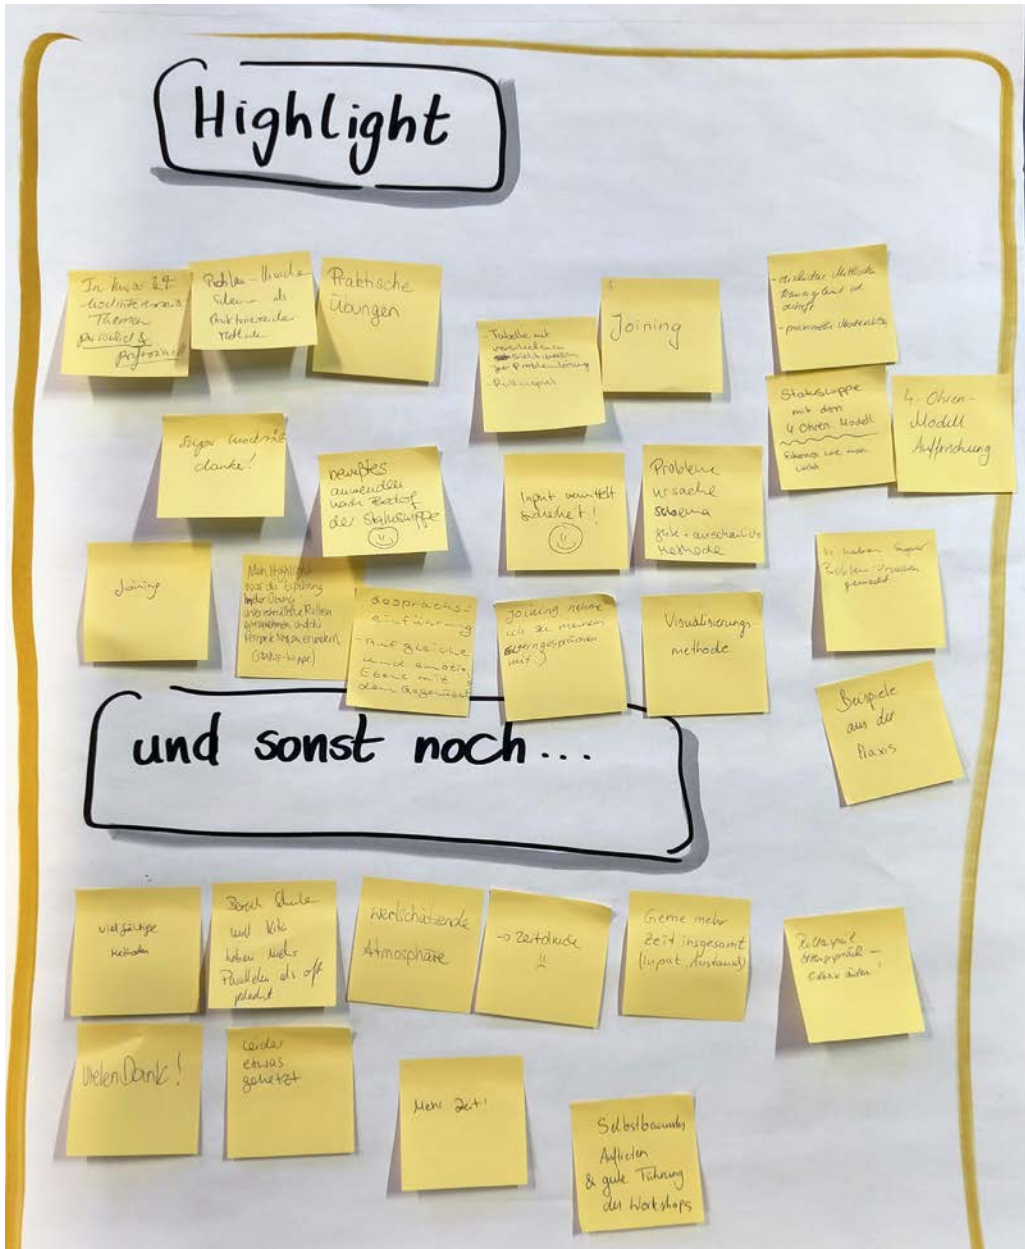 Highlight
In kurzer Zeit
Themen
persönlich &
Problem-Ursache
Schema als
Methode
Praktische
Übungen
- Tabelle mit
verschiedenen
zur Problemlösung
- Rollenspiel
Joining
Statuswippe
mit dem
4 Ohren Modell
4-Ohren-
Modell
Auffrischung
danke!
bewußtes
anwenden
nach Bedarf
der Statuswippe
Input vermittelt
Sicherheit!
Probleme
ursache
schema
gute + anschauliche
Methode
Joining
Mein Highlight
war die Erfahrung
in der Übung
unterschiedliche Rollen
einzunehmen und die
Perspektive zu erweitern
(Status-wippe)
Gesprächs-
einführung
- Auf gleiche
und emotio.
Ebene mit
dem Gegenüber
Joining nehme
ich zu meinen
Elterngesprächen
mit :)
Visualisierungs-
methode
Wir haben super
Problem-Ursachen
gemacht.
Beispiele
aus der
Praxis
und sonst noch...
vielfältige
Methoden
Bereich Schule
und Kita
haben mehr
Parallelen als oft
gedacht
Wertschätzende
Atmosphäre
→ Zeitdruck
!!
Gerne mehr
Zeit insgesamt
(Input, Austausch)
Rollenspiel
Elterngespräch –
Vielen Dank!
Leider
etwas
gehetzt
Mehr Zeit!
Selbstbewusstes
Auftreten
& gute Führung
des Workshops